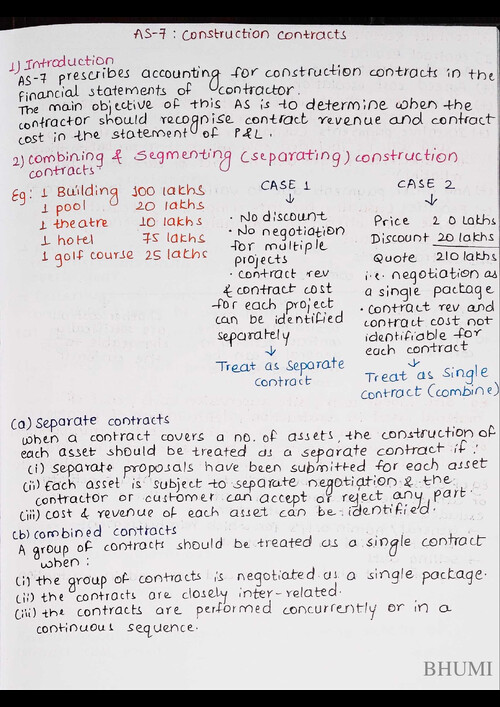 AS-7 : Construction contracts
1) Introduction
AS-7 prescribes accounting for construction contracts in the
financial statements of contractor.
The main objective of this AS is to determine when the
contractor should recognise contract revenue and contract
cost in the statement of P&L.
2) combining & segmenting (separating) construction
contracts
Eg: 1 Building 100 lakhs
1 pool 20 lakhs
1 theatre 10 lakhs
1 hotel 75 lakhs
1 golf course 25 lakhs
CASE 1
↓
· No discount
· No negotiation
for multiple
projects
· contract rev
& contract cost
for each project
can be identified
separately
↓
Treat as separate
contract
CASE 2
↓
Price 2 0 lakhs
Discount 20 lakhs
Quote 210 lakhs
i.e. negotiation as
a single package
· contract rev and
contract cost not
identifiable for
each contract
↓
Treat as single
contract (combine)
(a) Separate contracts
when a contract covers a no. of assets, the construction of
each asset should be treated as a separate contract if :
(i) separate proposals have been submitted for each asset
(ii) Each asset is subject to separate negotiation & the
contractor or customer can accept or reject any part.
(iii) cost & revenue of each asset can be identified.
(b) combined contracts
A group of contracts should be treated as a single contract
when :
(i) the group of contracts is negotiated as a single package.
(ii) the contracts are closely inter-related.
(iii) the contracts are performed concurrently or in a
continuous sequence.
BHUMI